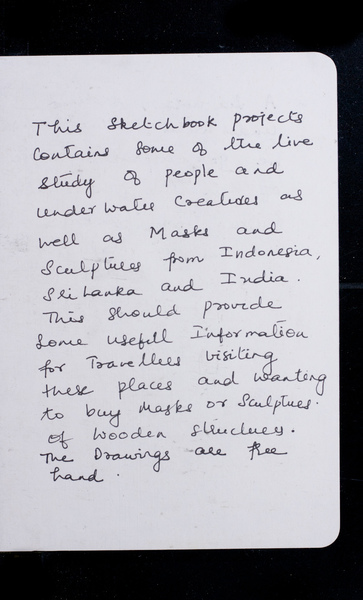 This Sketchbook projects
Contains Some of the live
Study of people and
underwater Creatures as
well as Masks and
Sculptures from Indonesia,
Sri Lanka and India.
This should provide
Some usefull Information
for Travellers visiting
these places and wanting
to buy Masks or Sculptures.
of Wooden Structures.
The Drawings are free
hand.